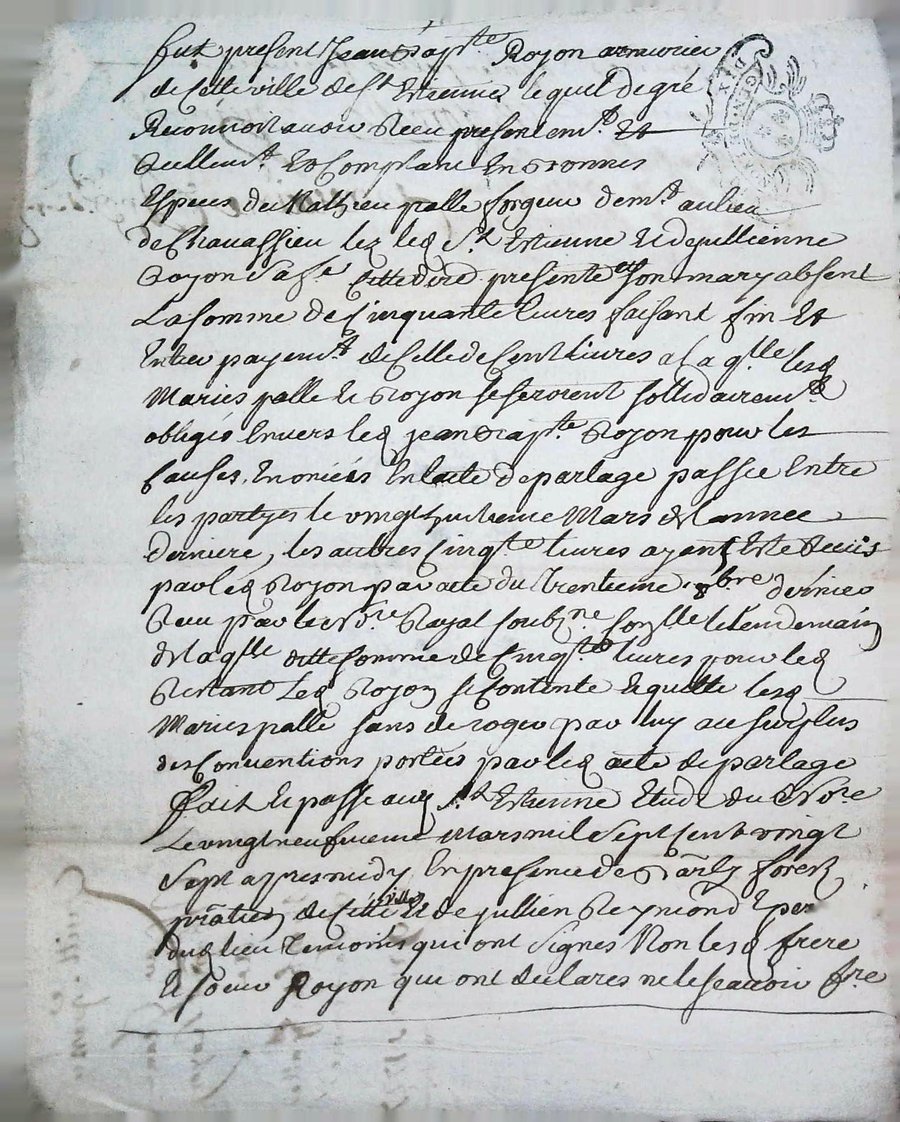 fut present Jean bapte Royon armurier
de cette ville de St Estienne lequel de gré
Reconnoit avoir Receu presentemt Et
Reellemt Et Comptant En bonnes
Especes de Mathieu palle forgeur demt au lieu
de Chavassieu lez led St Estienne Et de jullienne
Royon sa fe cette dire presente et son mary absent
La somme de Cinquante livres faisant fin Et
Entier payemt de Celle de Cent livres a laqlle lesd
Maries palle Et Royon se seroient sollidairemt
obligés Envers led jean bapte Royon pour les
Causes Enoncés En lacte de partage passée Entre
les partyes le vingt huitieme Mars de lannée
derniere, les autres Cinqte livres ayant Esté Receues
par led Royon par acte du Trentieme 9bre dernier
Receu par le Nore Royal soubzne Conlle le lendemain
de laqlle ditte somme de Cinqte livres pour led
Restant Led Royon se Contente Et quitte lesd
Maries palle sans deroger par luy au surplus
des Conventions portées par led acte de partage
fait Et passé aud St Estienne Etude du Nore
Le vingt neufvieme Mars mil sept cent vingt
sept apres midy En presence de forest
praticien de cette ville Et de jullien Reymond
dud lieu Temoins qui ont signes Non lesd frere
Et soeur Royon qui ont declarés ne le scavoir fre
DIX
GEN. DE